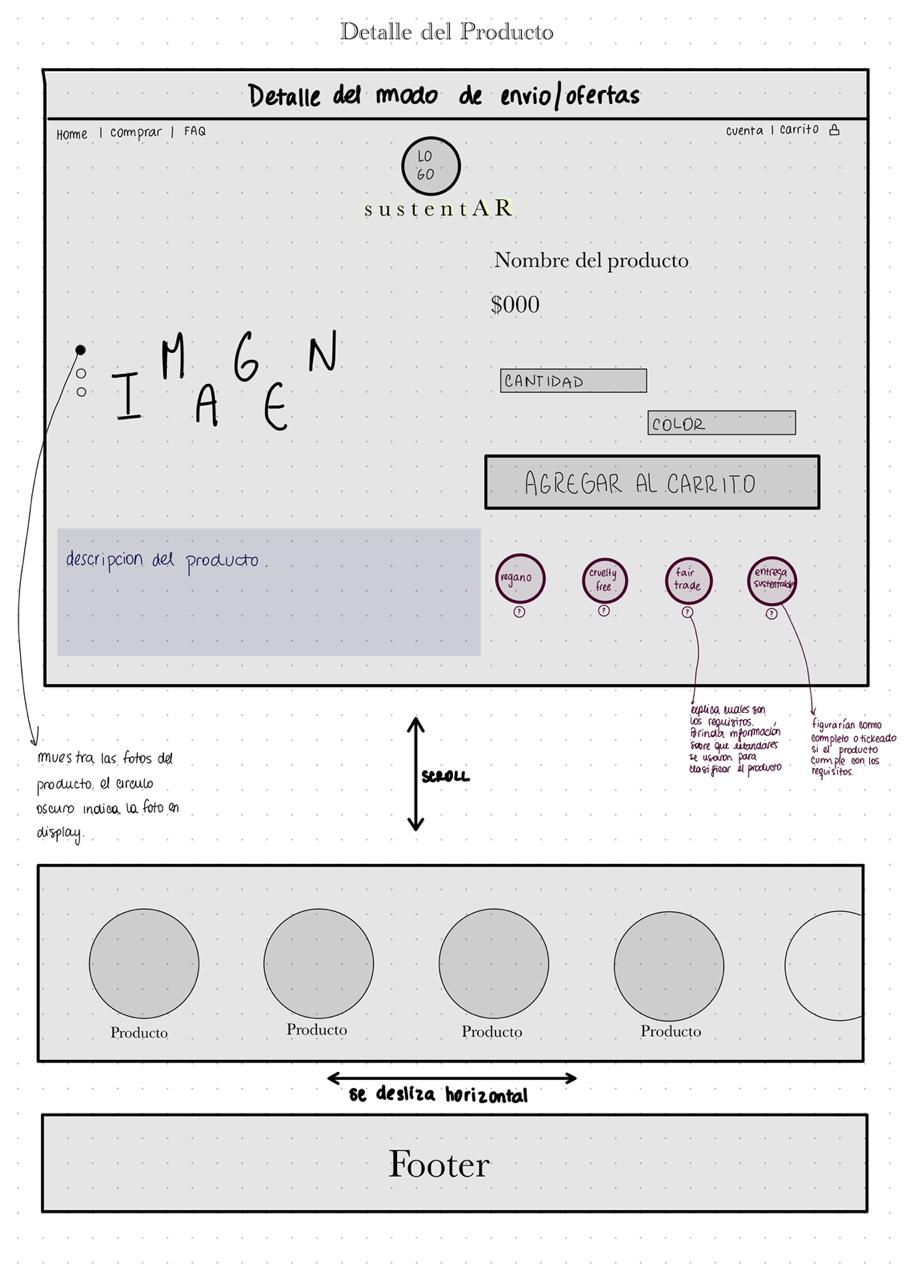 Detalle del Producto
Detalle del modo de envio/ofertas
Home | comprar | FAQ
cuenta | carrito
LO
GO
sustentAR
Nombre del producto
$000
IMAGEN
CANTIDAD
COLOR
AGREGAR AL CARRITO
descripcion del producto.
vegano
cruelty
free
fair
trade
entrega
sustentable
?
?
?
?
explica cuales son
los requisitos.
Brinda información
sobre que estandares
se usaron para
clasificar el producto
figurarían como
completo o tickeado
si el producto
cumple con los
requisitos.
muestra las fotos del
producto, el circulo
oscuro indica la foto en
display.
SCROLL
Producto
Producto
Producto
Producto
se desliza horizontal
Footer